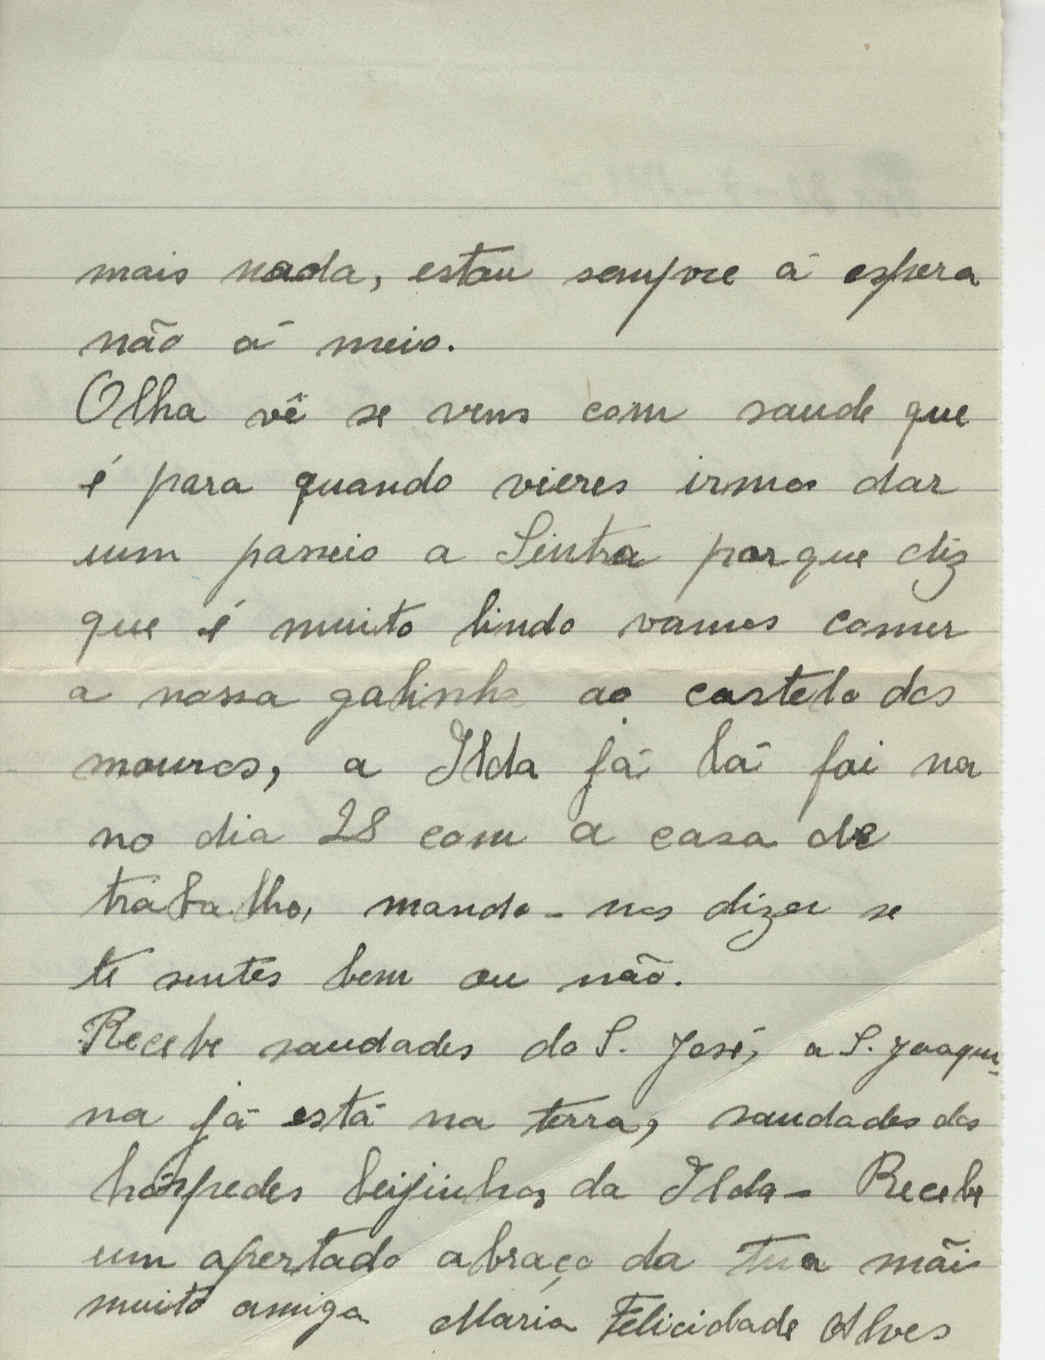 mais nada, estou sempre á espera
não á meio.
Olha vê se vens com saude que
é para quando vieres irmos dar
um passeio a Sintra porque diz
que é muito lindo vamos comer
a nossa galinha ao castelo dos
mouros, a Ilda já lá foi na
no dia 28 com a casa de
trabalho, manda-nos dizer se
te sentes bem ou não.
Recebe saudades do S. José, a S. Joaqui-
na já está na terra, saudades dos
hóspedes beijinhos da Ilda- Recebe
um apertado abraço da tua mãi
muito amiga Maria Felicidade Alves